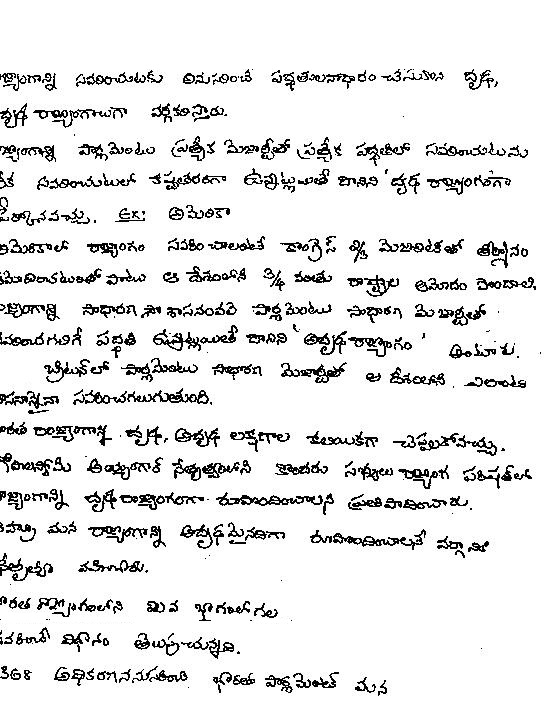 రాజ్యాంగాన్ని సవరించుటకు అనుసరించే పద్ధతులనాధారం చేసుకుని దృఢ,
అదృఢ రాజ్యాంగాలుగా వర్గీకరిస్తారు.
రాజ్యాంగాన్ని పార్లమెంటు ప్రత్యేక మెజార్టీతో ప్రత్యేక పద్ధతిలో సవరించుటను
సవరించుటలో కష్టతరంగా ఉన్నట్లయితే దానిని 'దృఢ రాజ్యాంగంగా
పేర్కొనవచ్చు. Ex: అమెరికా
అమెరికాలో రాజ్యాంగం సవరించాలంటే కాంగ్రెస్ 2/3 మెజారిటీతో తీర్మానం
ఆమోదించటంతో పాటు ఆ దేశంలోని 3/4 వంతు రాష్ట్రాల ఆమోదం పొందాలి.
రాజ్యాంగాన్ని సాధారణ శాసనంవలె పార్లమెంటు సాధారణ మెజార్టీతో
సవరించగలిగే పద్ధతి ఉన్నట్లయితే దానిని 'అదృఢ రాజ్యాంగం' అంటారు.
బ్రిటన్‌లో పార్లమెంటు సాధారణ మెజార్టీతో ఆ దేశంలోని ఎలాంటి
శాసనాన్నైనా సవరించగలుగుతుంది.
భారత రాజ్యాంగాన్ని దృఢ, అదృఢ లక్షణాల కలయికగా చెప్పుకోవచ్చు.
గోపాలస్వామి అయ్యంగార్ నేతృత్వంలోని కొందరు సభ్యులు రాజ్యాంగ పరిషత్‌లో
రాజ్యాంగాన్ని దృఢ రాజ్యాంగంగా రూపొందించాలని ప్రతిపాదించారు.
మన రాజ్యాంగాన్ని అదృఢమైనదిగా రూపొందించాలనే వర్గానికి
నేతృత్వం వహించారు.
భారత రాజ్యాంగంలోని భాగంలో గల
సవరించే విధానం తెలుపుచున్నది.
368 అధికరణననుసరించి భారత పార్లమెంట్ మన